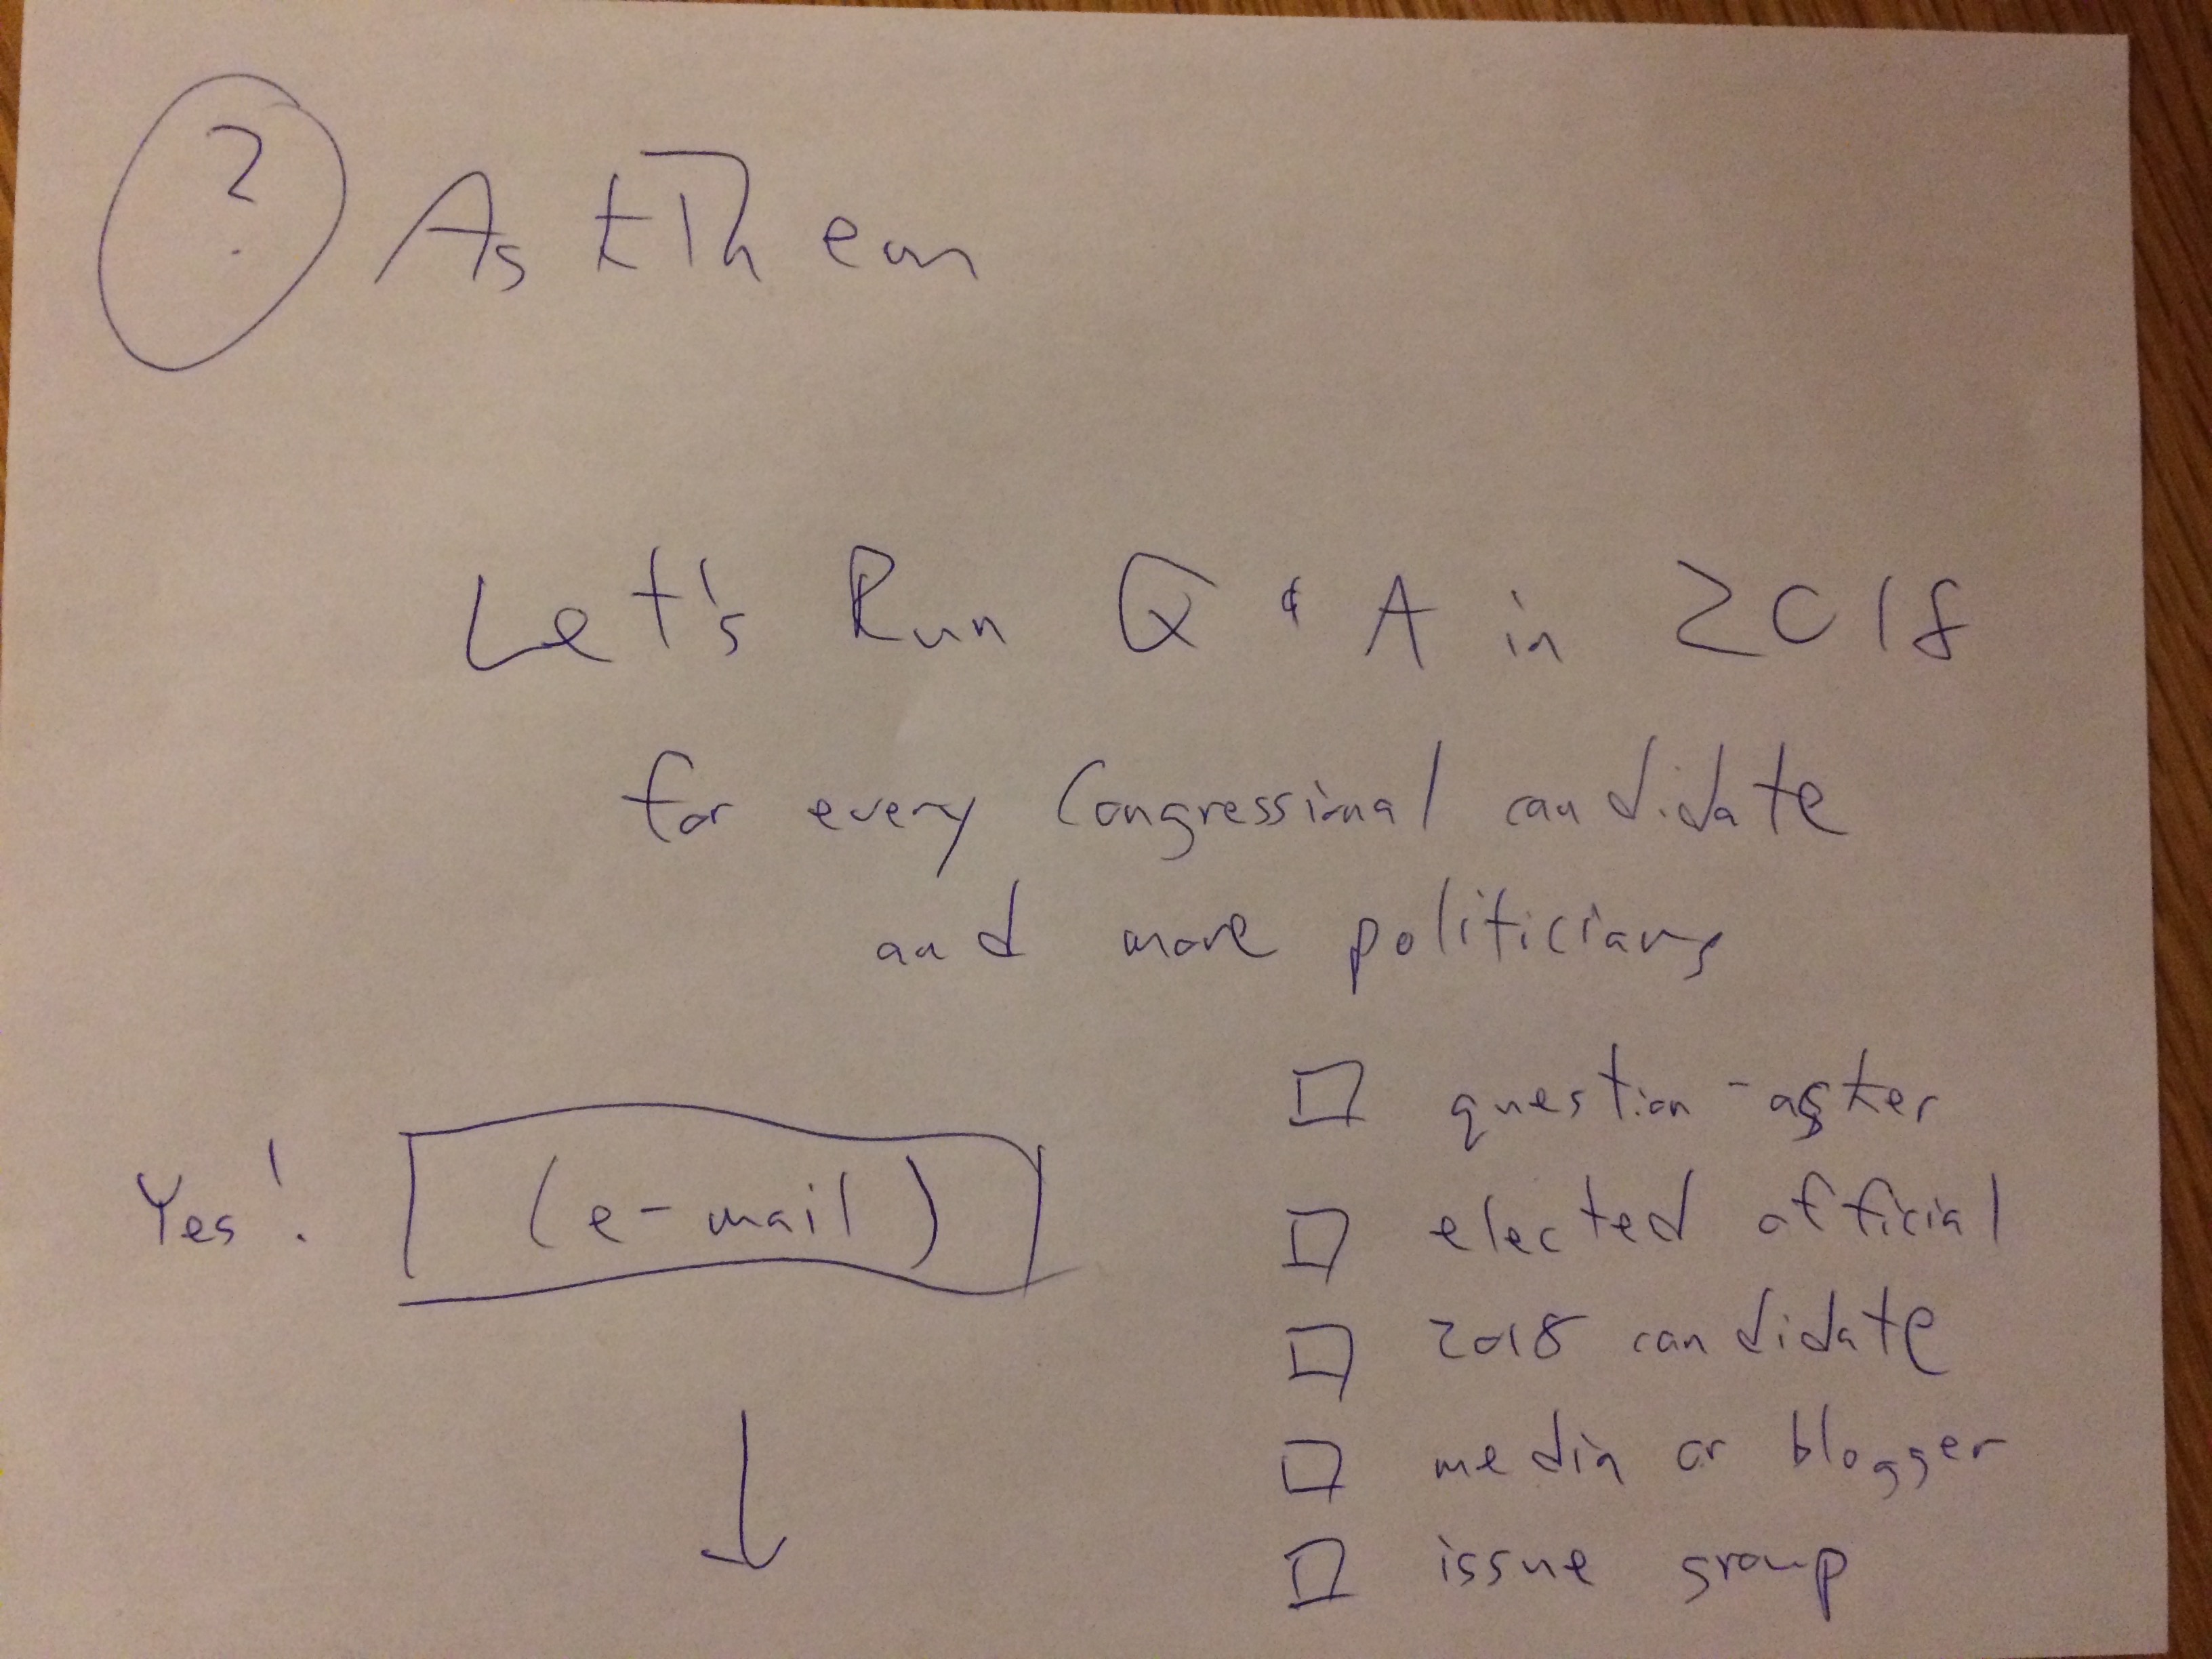 ? AskThem
Let's Run Q & A in 2018
for every Congressional candidate
and more politicians
Yes! (e-mail)
question-asker
elected official
2018 candidate
media or blogger
issue group